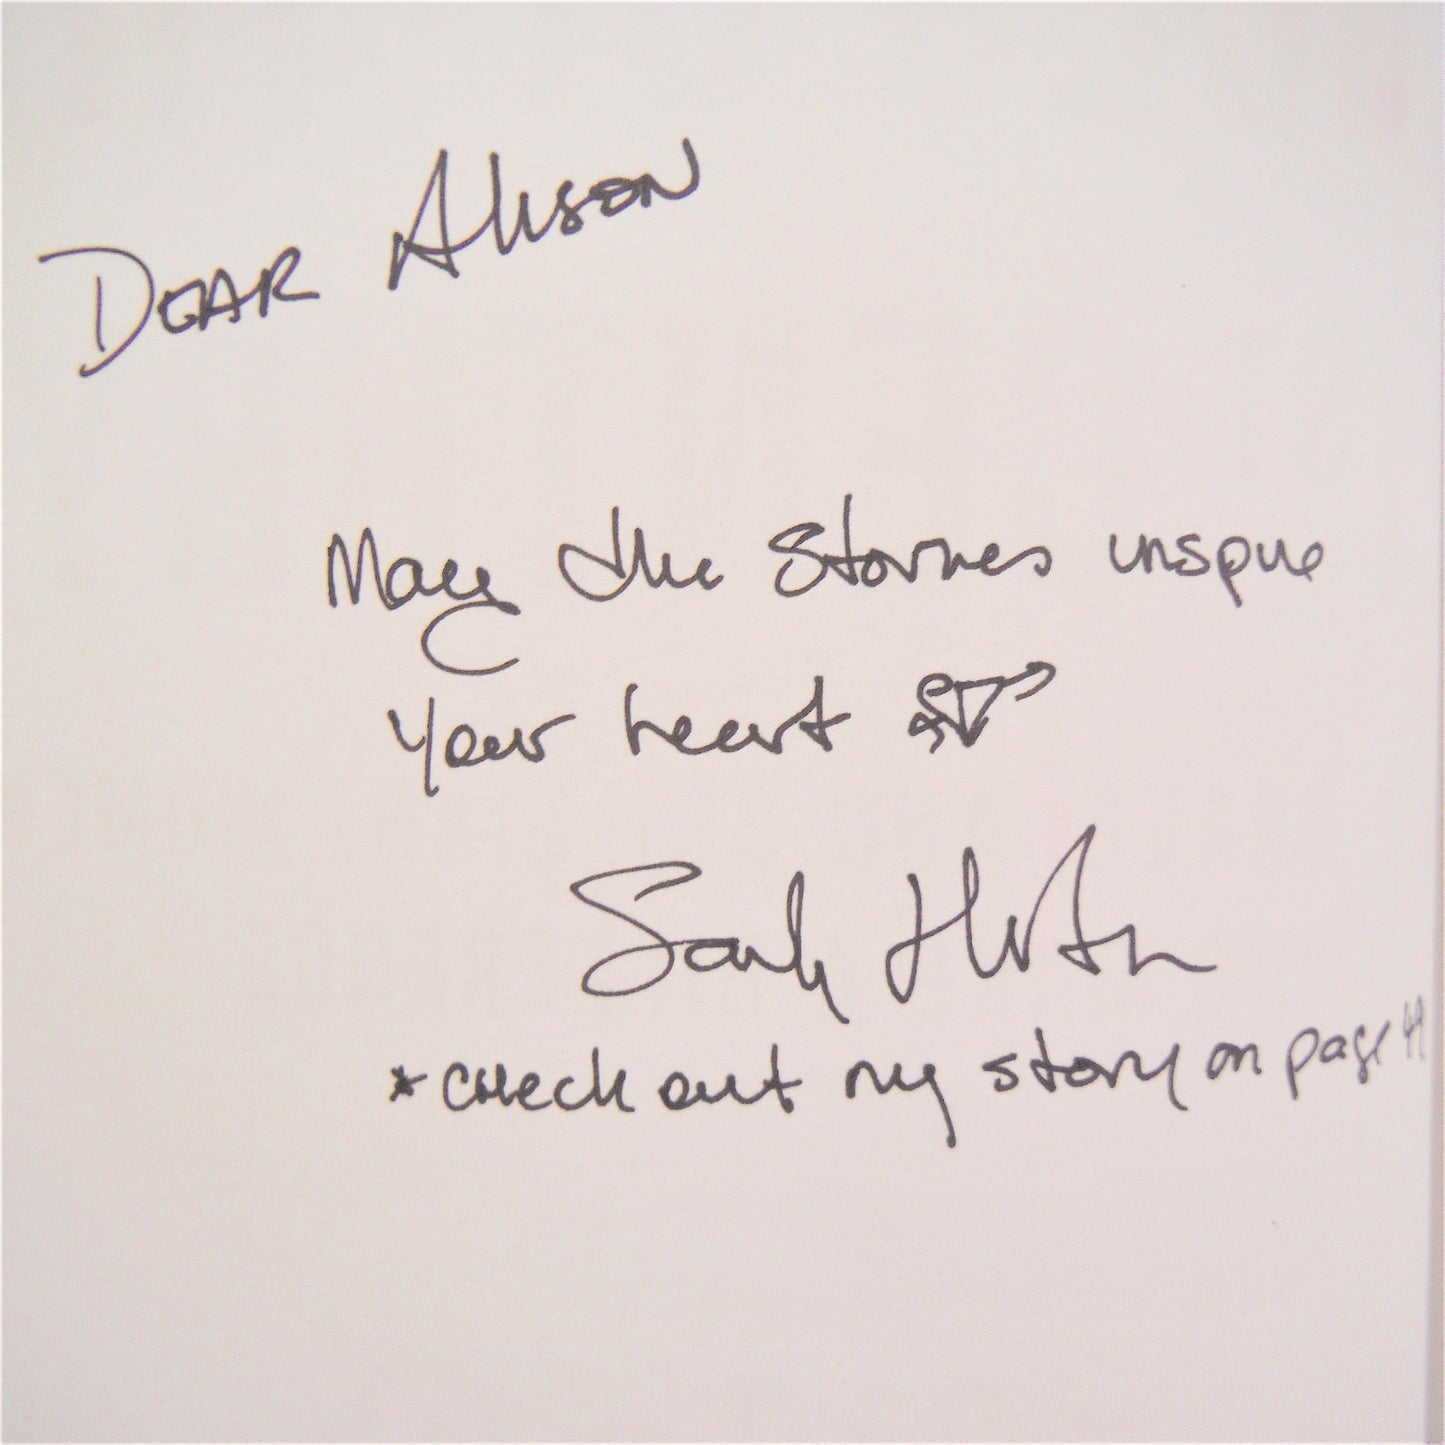 Dear Alison
May the stories inspire
your heart
Sarah
*check out my story on page 49